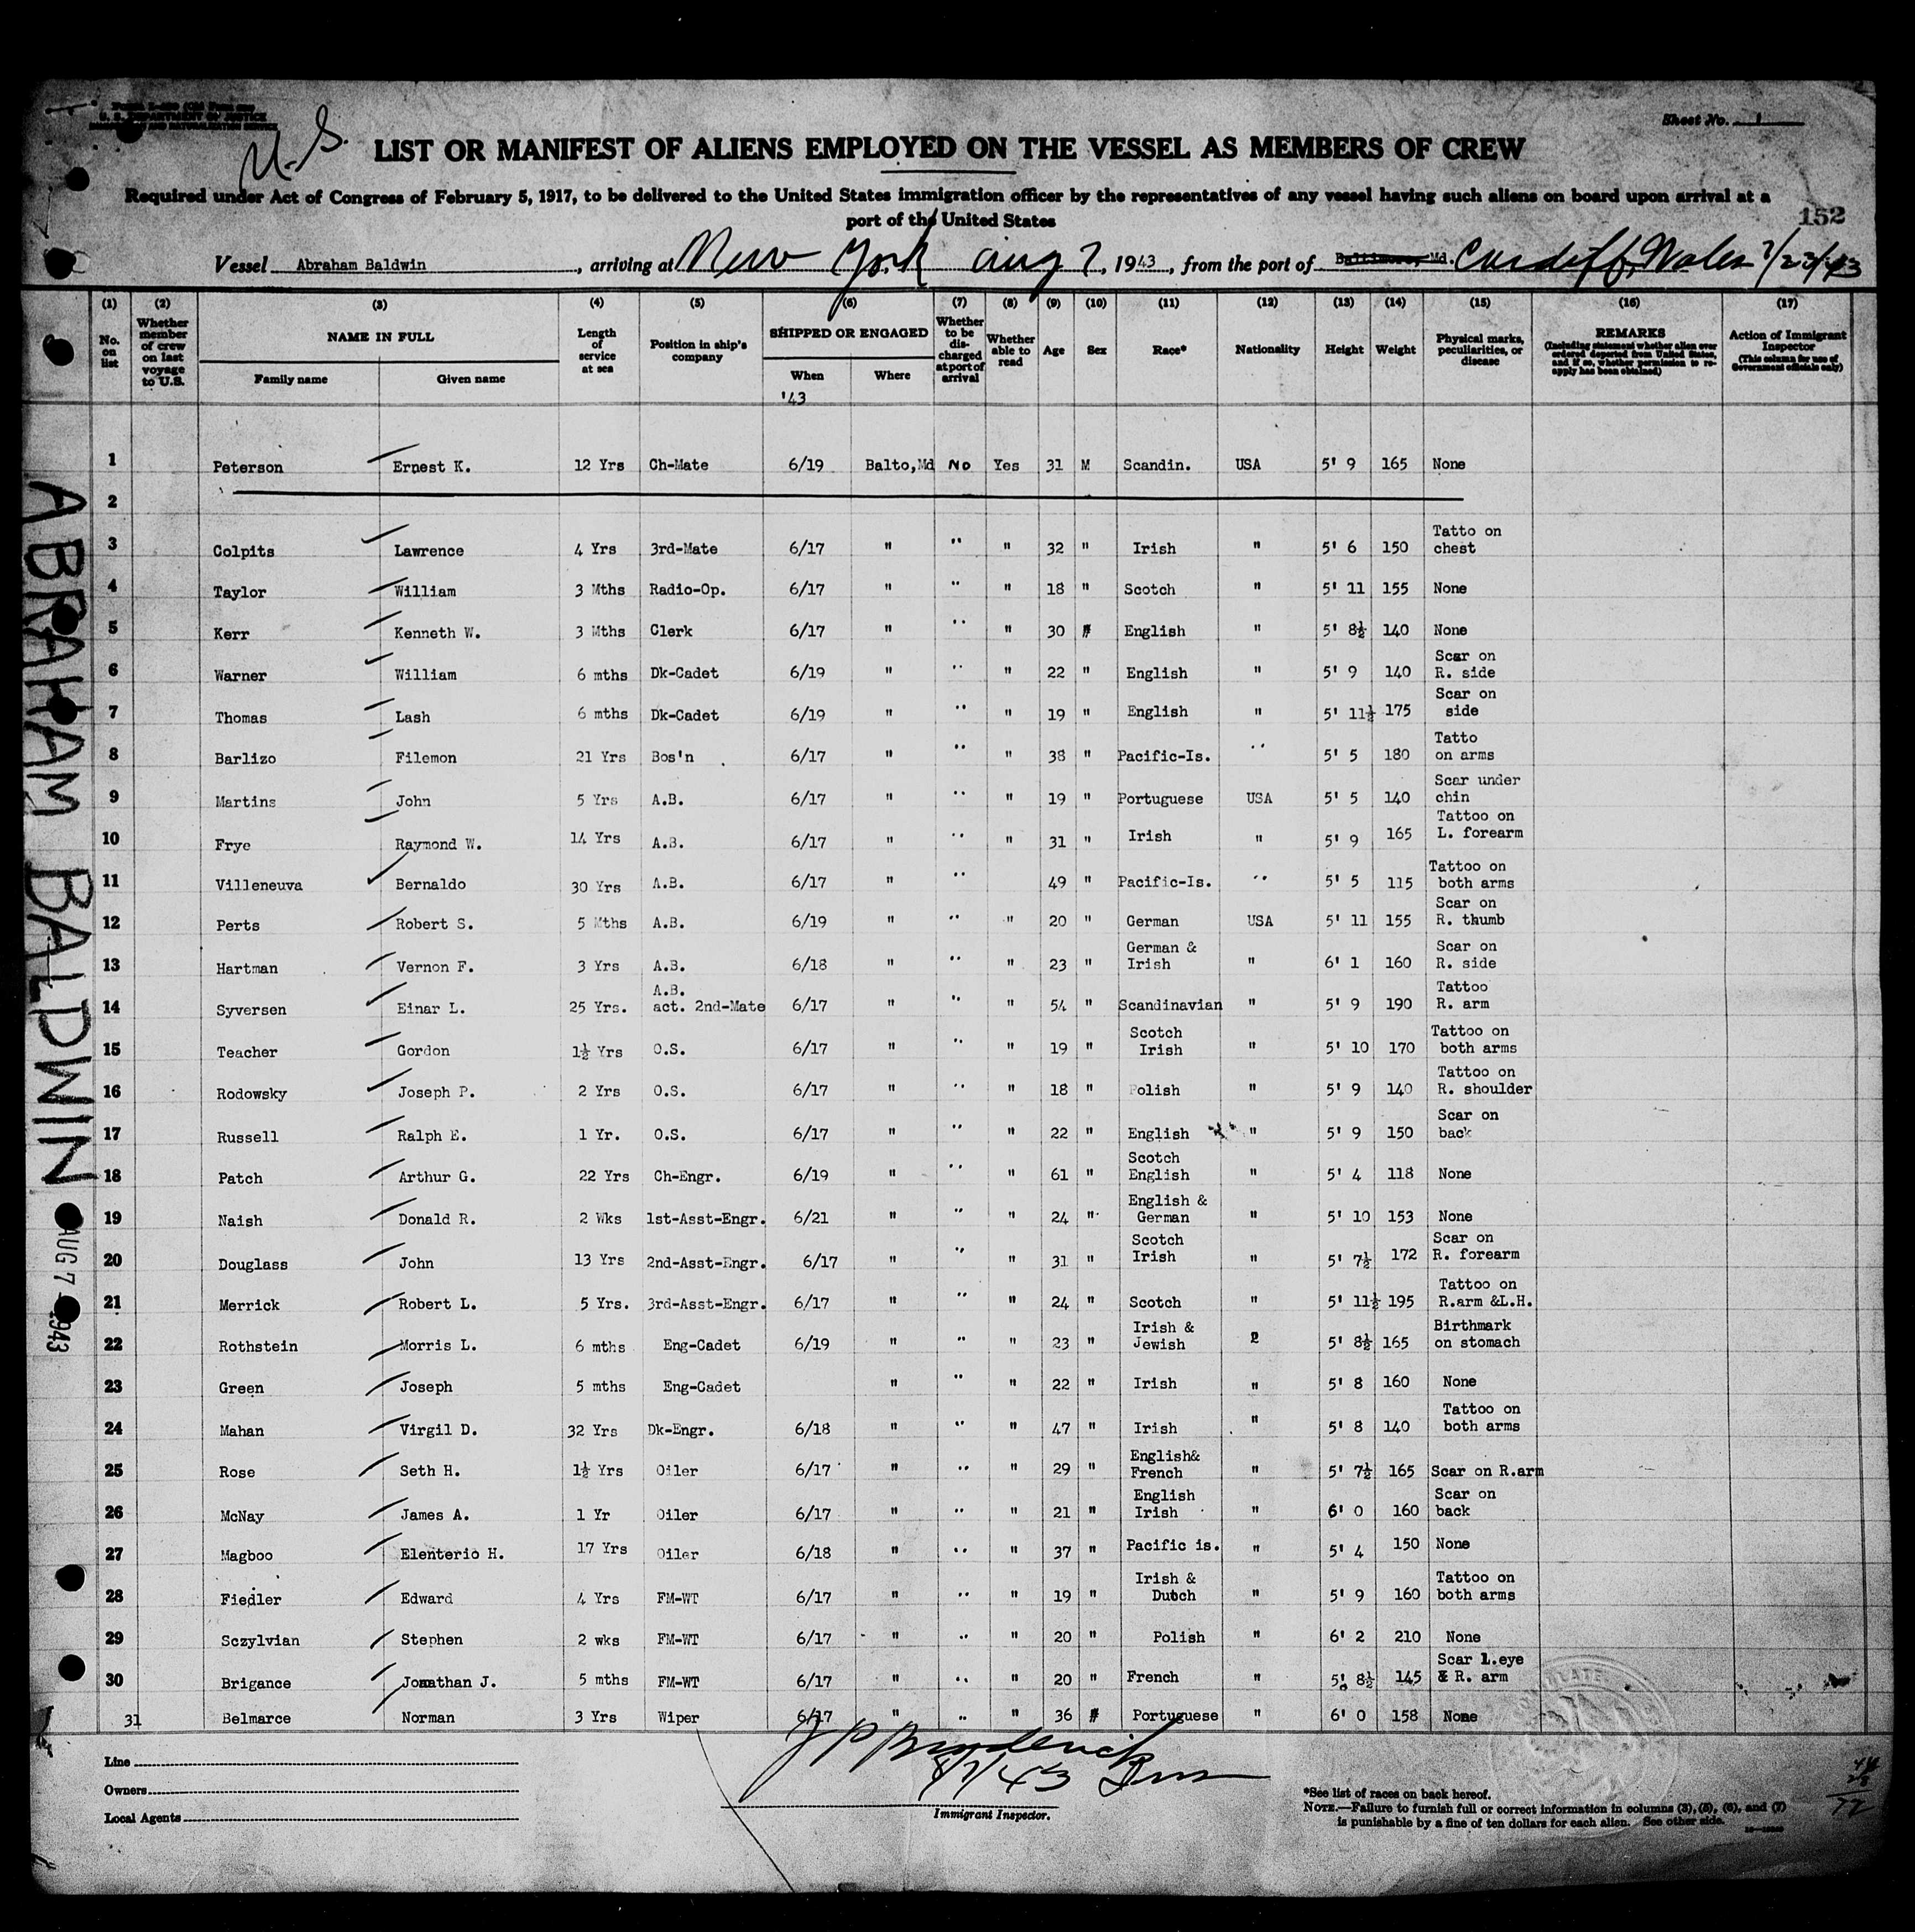 U. S. DEPARTMENT OF JUSTICE
U.S.
Sheet No. 1
LIST OR MANIFEST OF ALIENS EMPLOYED ON THE VESSEL AS MEMBERS OF CREW
Required under Act of Congress of February 5, 1917, to be delivered to the United States immigration officer by the representatives of any vessel having such aliens on board upon arrival at a
port of the United States
152
Vessel Abraham Baldwin, arriving at New York Aug 7, 1943, from the port of Baltimore, Md. Cardiff, Wales 7/23/43
(1) (2) (3) (4) (5) (6) (7) (8) (9) (10) (11) (12) (13) (14) (15) (16) (17)
No. on list
Whether member of crew on last voyage to U.S.
NAME IN FULL
Family name
Given name
Length of service at sea
Position in ship's company
SHIPPED OR ENGAGED
When
Where
'43
Whether to be discharged at port of arrival
Whether able to read
Age
Sex
Race*
Nationality
Height
Weight
Physical marks, peculiarities, or disease
REMARKS
(Including statement whether alien ever ordered deported from United States, and if so, whether permission to reapply has been obtained)
Action of Immigrant Inspector
(This column for use of Government officials only)
1 Peterson Ernest K. 12 Yrs Ch-Mate 6/19 Balto,Md No Yes 31 M Scandin. USA 5' 9 165 None
2
3 Colpits Lawrence 4 Yrs 3rd-Mate 6/17 " " " 32 " Irish " 5' 6 150 Tatto on chest
4 Taylor William 3 Mths Radio-Op. 6/17 " " " 18 " Scotch " 5' 11 155 None
5 Kerr Kenneth W. 3 Mths Clerk 6/17 " " " 30 " English " 5' 8½ 140 None
6 Warner William 6 mths Dk-Cadet 6/19 " " " 22 " English " 5' 9 140 Scar on R. side
7 Thomas Lash 6 mths Dk-Cadet 6/19 " " " 19 " English " 5' 11½ 175 Scar on side
8 Barlizo Filemon 21 Yrs Bos'n 6/17 " " " 38 " Pacific-Is. " 5' 5 180 Tatto on arms
9 Martins John 5 Yrs A.B. 6/17 " " " 19 " Portuguese USA 5' 5 140 Scar under chin
10 Frye Raymond W. 14 Yrs A.B. 6/17 " " " 31 " Irish " 5' 9 165 Tattoo on L. forearm
11 Villeneuva Bernaldo 30 Yrs A.B. 6/17 " " 49 " Pacific-Is. " 5' 5 115 Tattoo on both arms
12 Perts Robert S. 5 Mths A.B. 6/19 " " " 20 " German USA 5' 11 155 Scar on R. thumb
13 Hartman Vernon F. 3 Yrs A.B. 6/18 " " " 23 " German & Irish " 6' 1 160 Scar on R. side
14 Syversen Einar L. 25 Yrs. A.B. act. 2nd-Mate 6/17 " " " 54 " Scandinavian " 5' 9 190 Tattoo R. arm
15 Teacher Gordon 1½ Yrs O.S. 6/17 " " " 19 " Scotch Irish " 5' 10 170 Tattoo on both arms
16 Rodowsky Joseph P. 2 Yrs O.S. 6/17 " " " 18 " Polish " 5' 9 140 Tattoo on R. shoulder
17 Russell Ralph E. 1 Yr. O.S. 6/17 " " " 22 " English " 5' 9 150 Scar on back
18 Patch Arthur G. 22 Yrs Ch-Engr. 6/19 " " " 61 " Scotch English " 5' 4 118 None
19 Naish Donald R. 2 Wks 1st-Asst-Engr. 6/21 " " " 24 " English & German " 5' 10 153 None
20 Douglass John 13 Yrs 2nd-Asst-Engr. 6/17 " " " 31 " Scotch Irish " 5' 7½ 172 Scar on R. forearm
21 Merrick Robert L. 5 Yrs. 3rd-Asst-Engr. 6/17 " " " 24 " Scotch " 5' 11½ 195 Tattoo on R.arm &L.H.
22 Rothstein Morris L. 6 mths Eng-Cadet 6/19 " " " 23 " Irish & Jewish 2 5' 8½ 165 Birthmark on stomach
23 Green Joseph 5 mths Eng-Cadet " " " 22 " Irish " 5' 8 160 None
24 Mahan Virgil D. 32 Yrs Dk-Engr. 6/18 " " " 47 " Irish " 5' 8 140 Tattoo on both arms
25 Rose Seth H. 1½ Yrs Oiler 6/17 " " " 29 " English& French " 5' 7½ 165 Scar on R.arm
26 McNay James A. 1 Yr Oiler 6/17 " " " 21 " English Irish " 6' 0 160 Scar on back
27 Magboo Elenterio H. 17 Yrs Oiler 6/18 " " " 37 " Pacific is. " 5' 4 150 None
28 Fiedler Edward 4 Yrs FM-WT 6/17 " " " 19 " Irish & Dutch " 5' 9 160 Tattoo on both arms
29 Sczylvian Stephen 2 wks FM-WT 6/17 " " " 20 " Polish " 6' 2 210 None
30 Brigance Jonathan J. 5 mths FM-WT 6/17 " " " 20 " French " 5' 8½ 145 Scar L.eye & R. arm
31 Belmarce Norman 3 Yrs Wiper 6/17 " " " 36 " Portuguese " 6' 0 158 None
ABRAHAM BALDWIN
AUG 7 1943
Line
Owners
Local Agents
J P Broderick
8/7/43 Ins
Immigrant Inspector.
*See list of races on back hereof.
NOTE.—Failure to furnish full or correct information in columns (3), (5), (6), and (7)
is punishable by a fine of ten dollars for each alien. See other side.